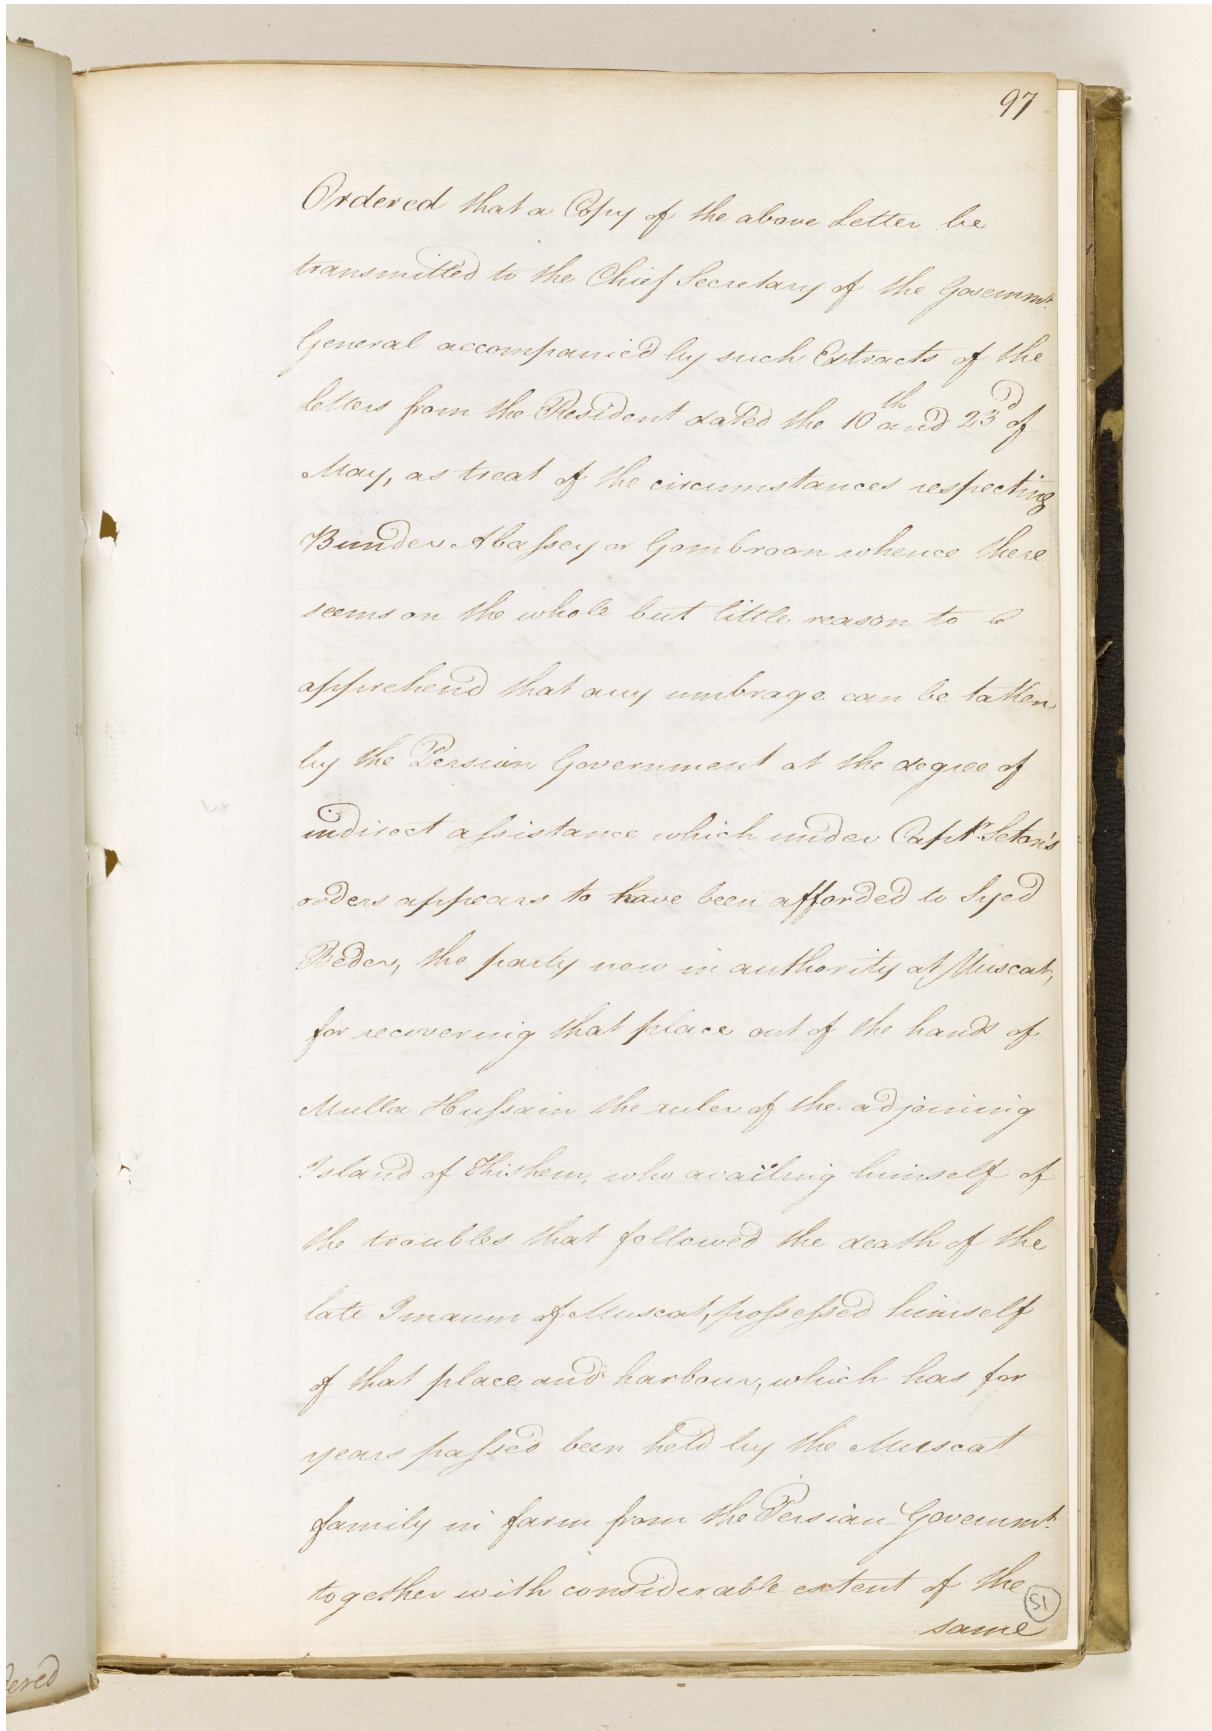 97
Ordered that a Copy of the above Letter be
transmitted to the Chief Secretary of the Governmt.
General accompanied by such Extracts of the
letters from the Resident dated the 10th and 23d of
May, as treat of the circumstances respecting
Bunder Abassey or Gombroon whence there
seems on the whole but little reason to
apprehend that any umbrage can be taken
by the Persian Government at the degree of
indirect assistance which under Captn. Seton's
orders appears to have been afforded to Syed
Beder, the party now in authority at Muscat,
for recovering that place out of the hands of
Mulla Hussain the ruler of the adjoining
Island of Khishem, who availing himself of
the troubles that followed the death of the
late Imaum of Muscat, possessed himself
of that place and harbour, which has for
years passed been held by the Muscat
family in farm from the Persian Governmt.
together with considerable extent of the
51
same
dered